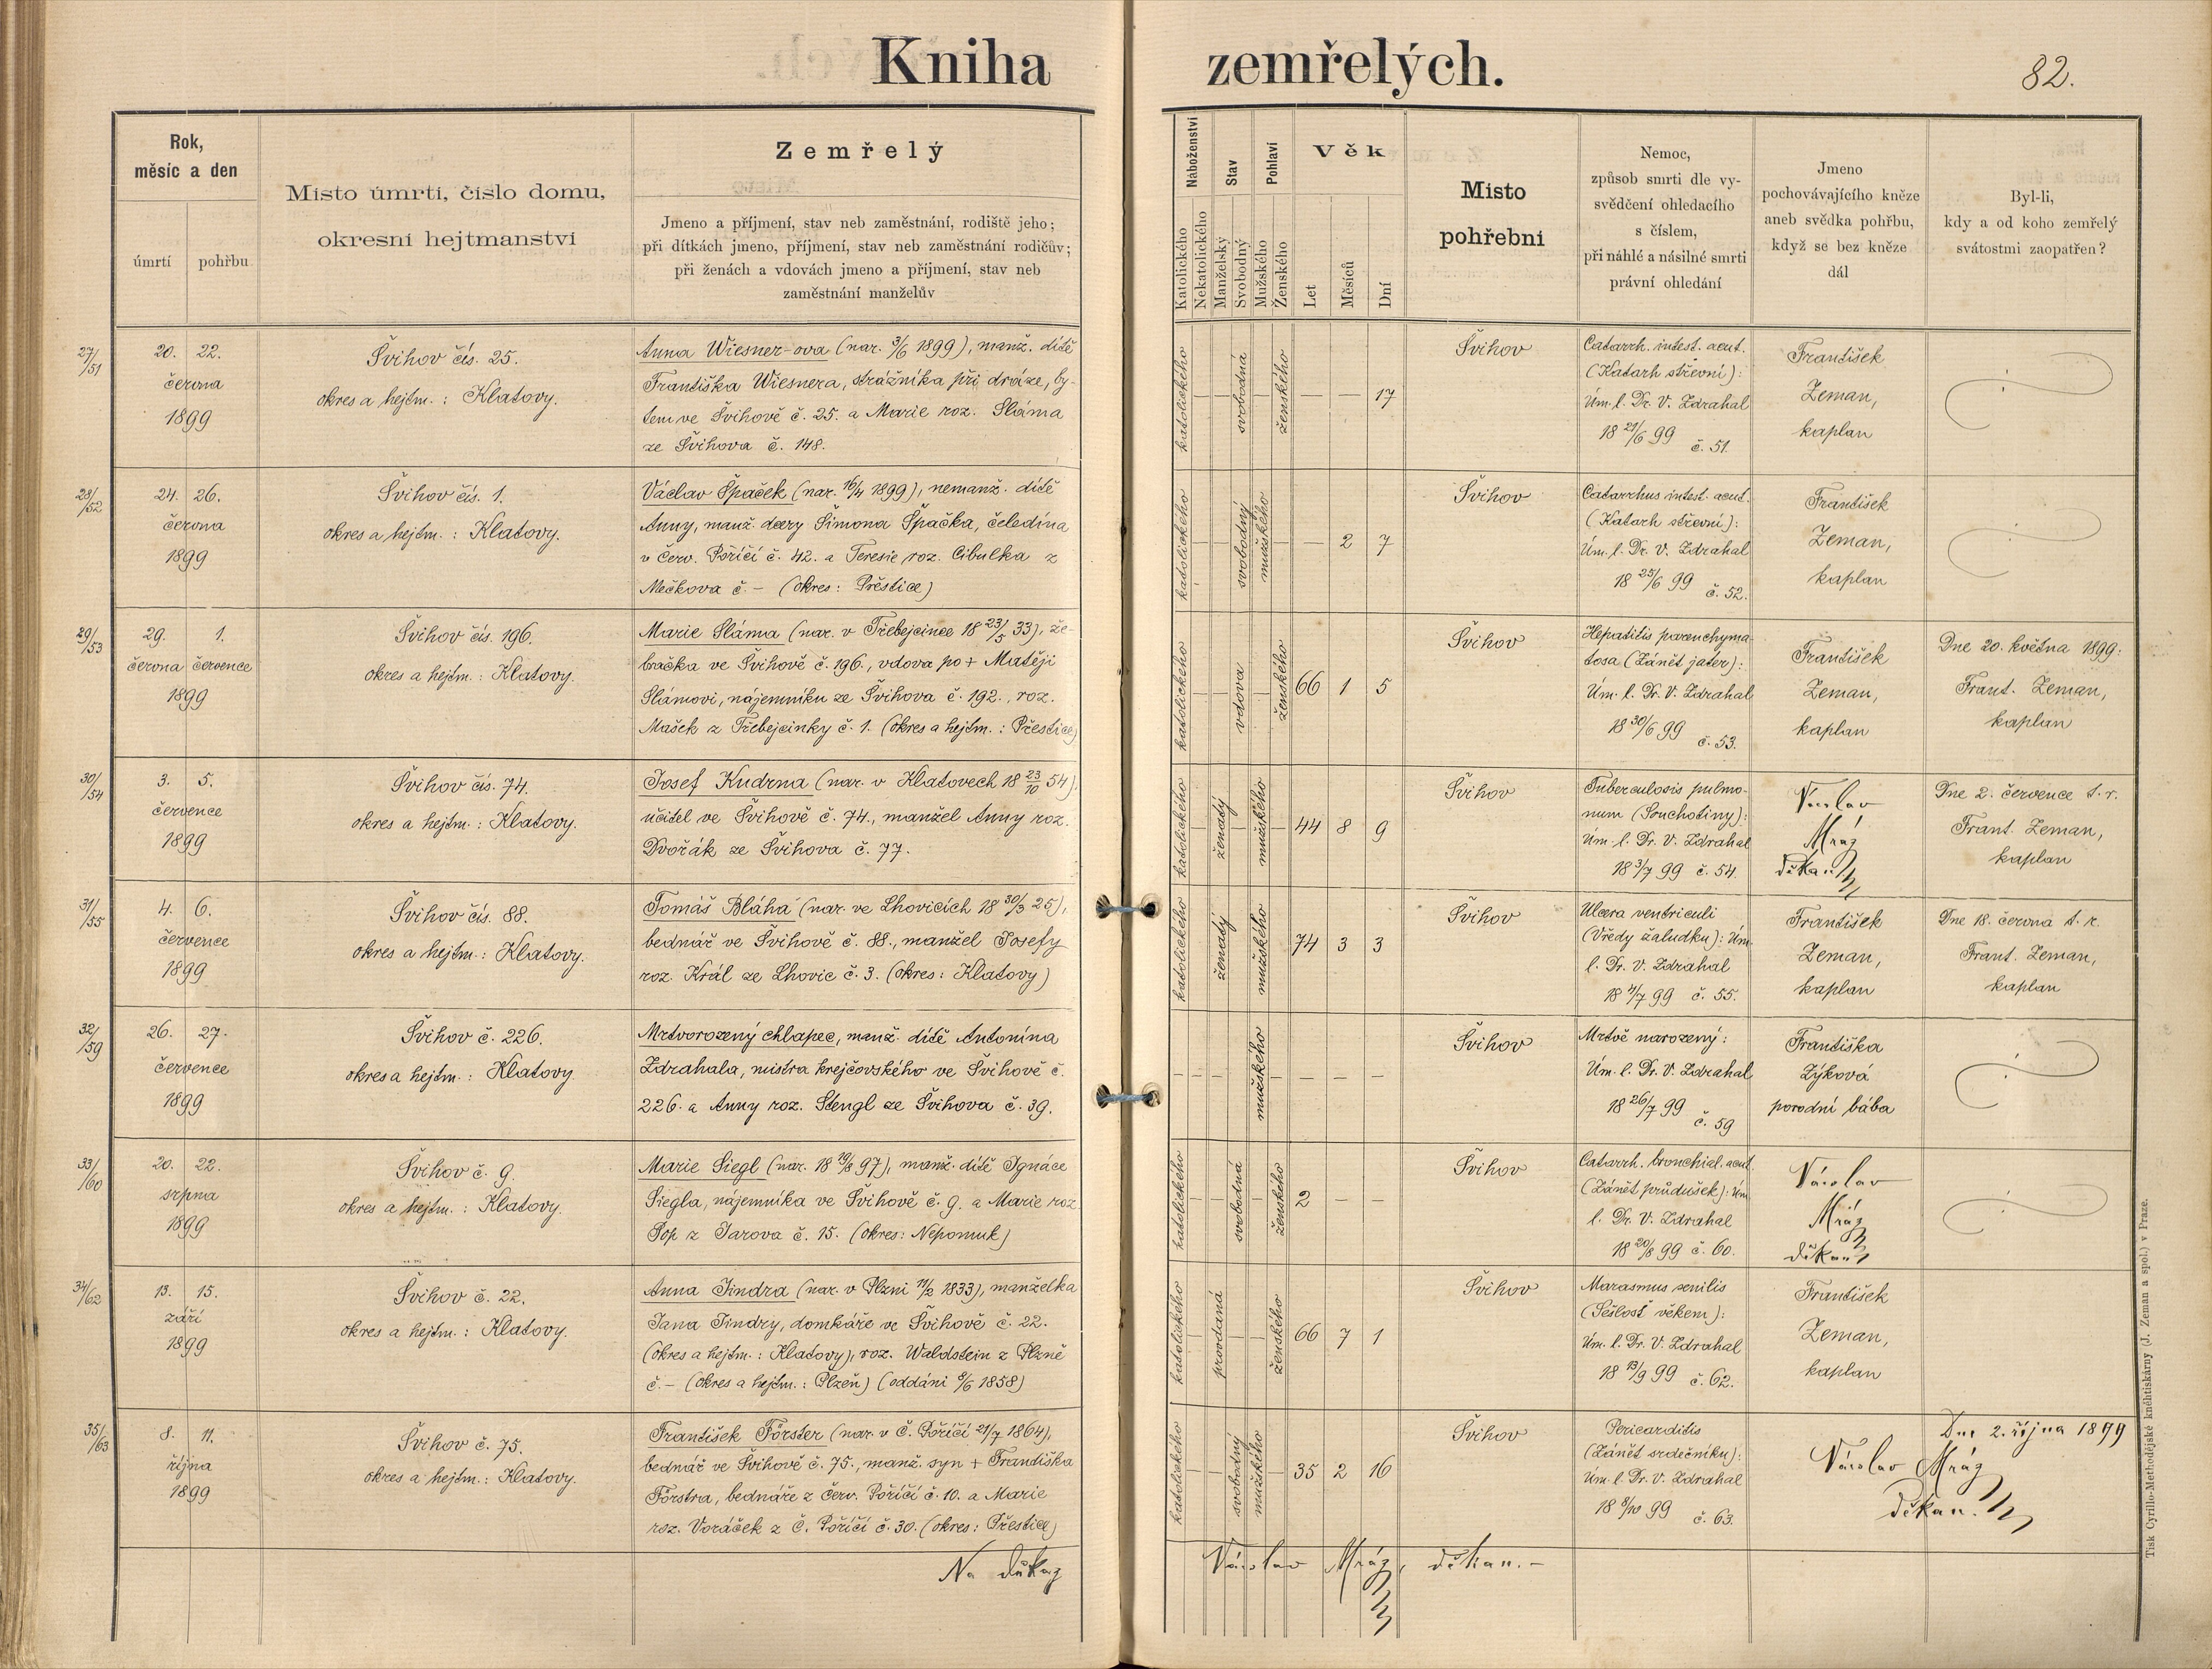 Kniha zemřelých.
82.
Rok,
měsíc a den
úmrtí
pohřbu
Místo úmrtí, číslo domu,
okresní hejtmanství
Zemřelý
Jmeno a příjmení, stav neb zaměstnání, rodiště jeho;
při dítkách jmeno, příjmení, stav neb zaměstnání rodičův;
při ženách a vdovách jmeno a příjmení, stav neb
zaměstnání manželův
Náboženství
Katolického
Nekatolického
Stav
Manželský
Svobodný
Pohlaví
Mužského
Ženského
Věk
Let
Měsíců
Dní
Místo
pohřební
Nemoc,
způsob smrti dle vy-
svědčení ohledacího
s číslem,
při náhlé a násilné smrti
právní ohledání
Jmeno
pochovávajícího kněze
aneb svědka pohřbu,
když se bez kněze
dál
Byl-li,
kdy a od koho zemřelý
svátostmi zaopatřen?
27/51
20. 22.
června
1899
Švihov čís. 25.
okres a hejtm.: Klatovy.
Anna Wiesner-ova (nar. 3/6 1899), manž. dítě
Františka Wiesnera, strážníka při dráze, by-
tem ve Švihově č. 25. a Marie roz. Sláma
ze Švihova č. 148.
katolického
svobodná
ženského
— — 17
Švihov
Catarrh. intest. acut.
(Katarh střevní):
Úm. l. Dr. V. Zdrahal
18 21/6 99 č. 51.
František
Zeman,
kaplan
28/52
24. 26.
června
1899
Švihov čís. 1.
okres a hejtm.: Klatovy.
Václav Špaček (nar. 16/4 1899), nemanž. dítě
Anny, manž. dcery Šimona Špačka, čeledína
v Červ. Poříčí č. 42. a Teresie roz. Cibulka z
Mečkova č. — (okres: Přeštice)
katolického
svobodný
mužského
— 2 7
Švihov
Catarrhus intest. acut.
(Katarh střevní):
Úm. l. Dr. V. Zdrahal
18 25/6 99 č. 52.
František
Zeman,
kaplan
29/53
29. 1.
června července
1899
Švihov čís. 196.
okres a hejtm.: Klatovy.
Marie Sláma (nar. v Třebejcince 18 23/5 33), že-
bračka ve Švihově č. 196., vdova po + Matěji
Slámovi, nájemníku ze Švihova č. 192., roz.
Mašek z Třebejcinky č. 1. (okres a hejtm.: Přeštice)
katolického
vdova
ženského
66 1 5
Švihov
Hepatitis parenchyma-
tosa (Zánět jater):
Úm. l. Dr. V. Zdrahal
18 30/6 99 č. 53.
František
Zeman,
kaplan
Dne 20. května 1899:
Frant. Zeman,
kaplan
30/54
3. 5.
července
1899
Švihov čís. 74.
okres a hejtm.: Klatovy.
Josef Kudrna (nar. v Klatovech 18 23/10 54)
učitel ve Švihově č. 74., manžel Anny roz.
Dvořák ze Švihova č. 77.
katolického
ženatý
mužského
44 8 9
Švihov
Tuberculosis pulmo-
num (Souchotiny):
Úm. l. Dr. V. Zdrahal
18 3/7 99 č. 54.
Václav
Mráz
děkan
Dne 2. července t. r.
Frant. Zeman,
kaplan
31/55
4. 6.
července
1899
Švihov čís. 88.
okres a hejtm.: Klatovy.
Tomáš Bláha (nar. ve Lhovicích 18 30/3 25),
bednář ve Švihově č. 88., manžel Josefy
roz. Král ze Lhovic č. 3. (okres: Klatovy)
katolického
ženatý
mužského
74 3 3
Švihov
Ulcera ventriculi
(Vředy žaludku): Úm.
l. Dr. V. Zdrahal
18 4/7 99 č. 55.
František
Zeman,
kaplan
Dne 18. června t. r.
Frant. Zeman,
kaplan
32/59
26. 27.
července
1899
Švihov č. 226.
okres a hejtm.: Klatovy
Mrtvorozený chlapec, manž. dítě Antonína
Zdrahala, mistra krejčovského ve Švihově č.
226. a Anny roz. Stengl ze Švihova č. 39.
mužského
— — —
Švihov
Mrtvě narozený:
Úm. l. Dr. V. Zdrahal
18 26/7 99 č. 59
Františka
Zýková
porodní bába
33/60
20. 22.
srpna
1899
Švihov č. 9.
okres a hejtm.: Klatovy.
Marie Siegl (nar. 18 19/8 97), manž. dítě Ignáce
Siegla, nájemníka ve Švihově č. 9. a Marie roz.
Pop z Jarova č. 15. (okres: Nepomuk)
katolického
svobodná
ženského
2 — —
Švihov
Catarrh. bronchial. acut.
(Zánět průdušek): Úm.
l. Dr. V. Zdrahal
18 20/8 99 č. 60.
Václav
Mráz
děkan
34/62
13. 15.
září
1899
Švihov č. 22.
okres a hejtm.: Klatovy.
Anna Jindra (nar. v Plzni 11/2 1833), manželka
Jana Jindry, domkáře ve Švihově č. 22.
(okres a hejtm.: Klatovy), roz. Waldstein z Plzně
č. — (okres a hejtm.: Plzeň) (oddáni 8/6 1858)
katolického
provdaná
ženského
66 7 1
Švihov
Marasmus senilis
(Sešlosť věkem):
Úm. l. Dr. V. Zdrahal
18 13/9 99 č. 62.
František
Zeman,
kaplan
35/63
8. 11.
října
1899
Švihov č. 75.
okres a hejtm.: Klatovy.
František Förster (nar. v Č. Poříčí 21/7 1864),
bednář ve Švihově č. 75., manž. syn + Františka
Förstra, bednáře z Červ. Poříčí č. 10. a Marie
roz. Voráček z Č. Poříčí č. 30. (okres: Přeštice)
katolického
svobodný
mužského
35 2 16
Švihov
Pericarditis
(Zánět srdečníku):
Úm. l. Dr. V. Zdrahal
18 8/10 99 č. 63.
Dne 2. října 1899
Václav Mráz
děkan.
Na důkaz Václav Mráz, děkan.—
Tisk Cyrillo-Methodějské kněhtiskárny (J. Zeman a spol.) v Praze.